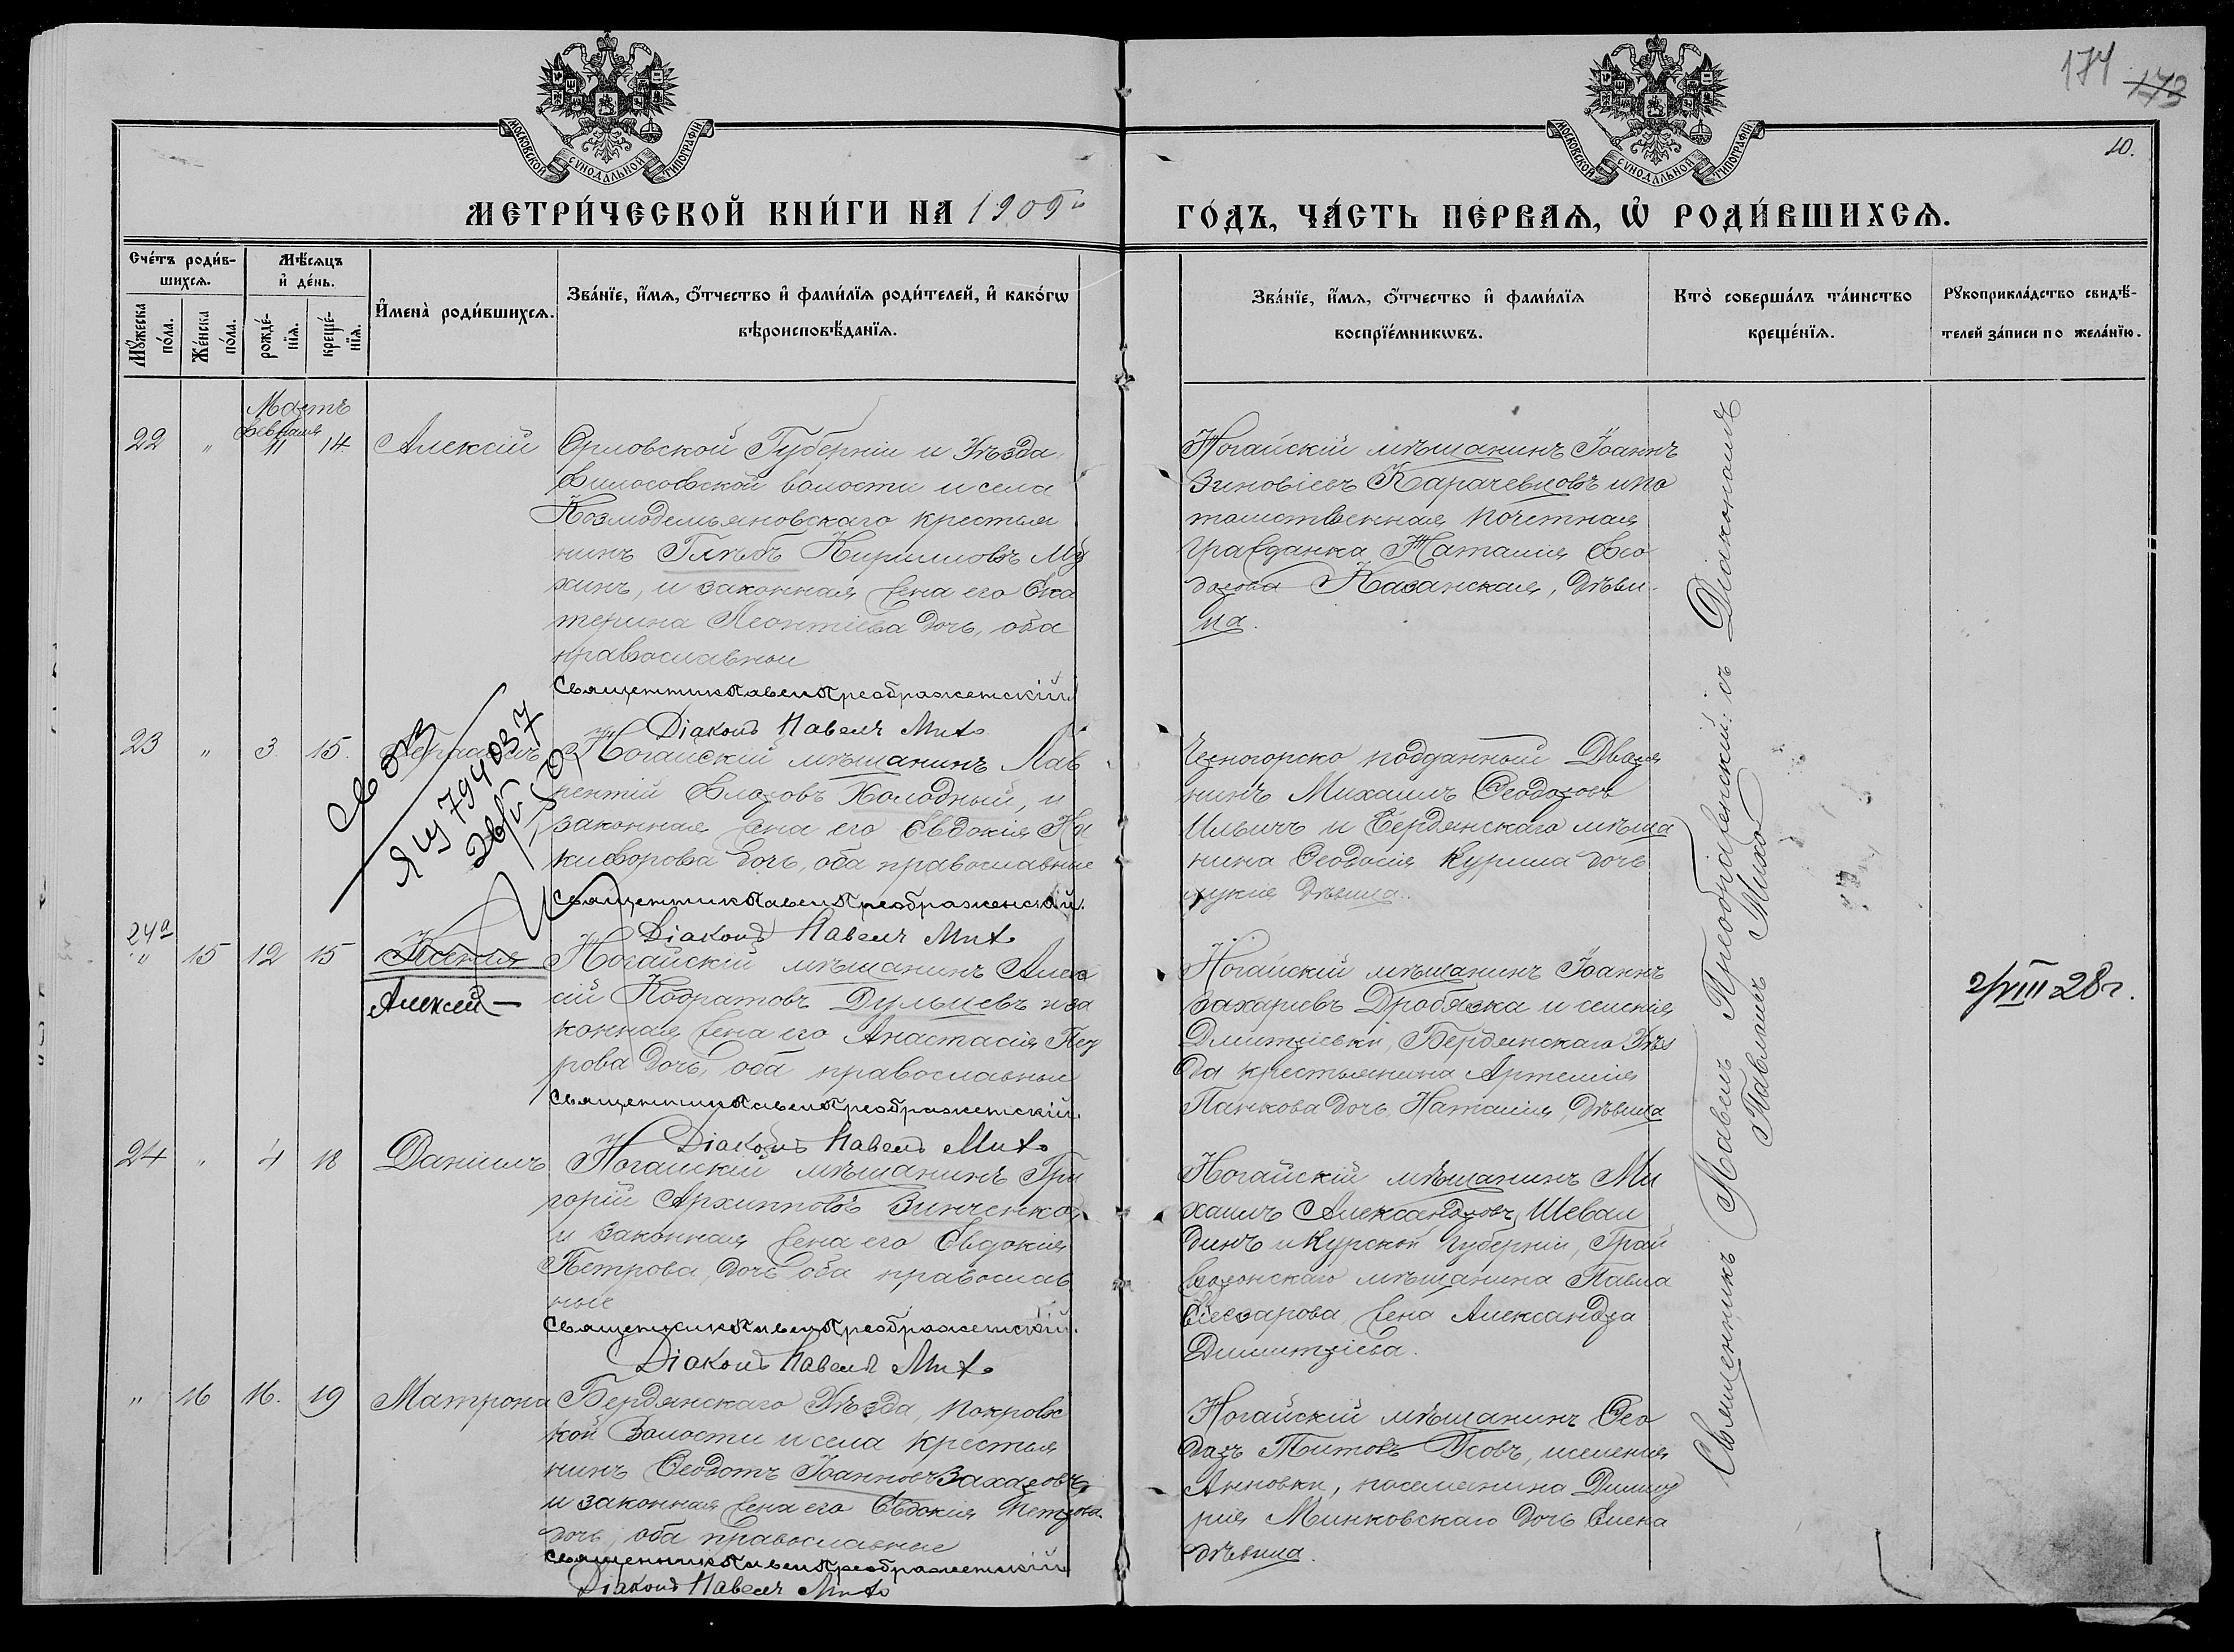 174 173
10.
МОСКОВСКОЙ СУНОДАЛЬНОЙ ТИПОГРАФІИ
МОСКОВСКОЙ СУНОДАЛЬНОЙ ТИПОГРАФІИ
МЕТРИ́ЧЕСКОЙ КНИ́ГИ НА 1909й
ГО́ДЪ, ЧА́СТЬ ПЕ́РВАѦ, Ѡ҆ РОДИ́ВШИХСѦ.
Сче́тъ роди́в-
шихсѧ.
Мꙋжеска по́ла.
Же́нска по́ла.
Мѣ́сѧцъ
и҆ де́нь.
рожде́-
нїѧ.
креще́-
нїѧ.
И҆мена̀ роди́вшихсѧ.
Зва́нїе, и҆́мѧ, ѻ҆́тчество и҆ фами́лїѧ роди́телей, и҆ како́гѡ
вѣроисповѣ́данїѧ.
Зва́нїе, и҆́мѧ, ѻ҆́тчество и҆ фами́лїѧ
воспрїе́мникѡвъ.
Кто̀ соверша́лъ та́инство
креще́нїѧ.
Рꙋкоприкла́дство свидѣ́-
телей за́писи по жела́нїю.
Мартъ
Февраля
22 " 11 14. Алексій
Орловской Губерніи и Уѣзда
Философской волости и села
Козмодемьяновскаго крестья
нинъ Глѣбъ Кирилловъ Му
хинъ, и законная жена его Ека
терина Леонтіева дочь, оба
православные
Священникъ Павелъ Преображенскій
Діаконъ Павелъ Мих
Ногайскій мѣщанинъ Іоаннъ
Зиновіевъ Карачевцовъ и по
томственная почетная
гражданка Наталія Ѳео
дорова Казанская, дѣви
ца.
23 " 3. 15.
Ногайскій мѣщанинъ Лав
рентій Флоровъ Холодный, и
законная жена его Евдокія Ни
кифорова дочь, оба православные
Священникъ Павелъ Преображенскій.
Діаконъ Павелъ Мих
Черногорско подданный Дворя
нинъ Михаилъ Ѳеодоровъ
Ильичъ и Бердянскаго мѣща
нина Ѳеодосія Курила дочь
дѣвица.
Св ЯЦ 794037
24а
" 15 12 15 Ксенія
Алексей —
Ногайскій мѣщанинъ Алек
сій Кодратовъ Дульцевъ и за
конная жена его Анастасія Пет
рова дочь, оба православные
Священникъ Павелъ Преображенскій.
Діаконъ Павелъ Мих
Ногайскій мѣщанинъ Іоаннъ
Захаріевъ Дробязка и селенія
Дмитріевки, Бердянскаго Уѣз
да крестьянина Артемія
Панкова дочь Наталія, дѣвица
2/VIII 28 г.
24 " 4 18 Даніилъ
Ногайскій мѣщанинъ Гри
горій Архипповъ Зинченко,
и законная жена его Евдокія
Петрова, дочь оба православ
ные
Священникъ Павелъ Преображенскій.
Діаконъ Павелъ Мих
Ногайскій мѣщанинъ Ми
хаилъ Александровъ Шевал
динъ и Курской Губерніи, Грай
воронскаго мѣщанина Павла
жена Александра
Димитріева.
" 16 16. 19 Матрона
Бердянскаго Уѣзда, Покровс
кой Волости и села крестья
нинъ Ѳеодотъ Іоанновъ Захаровъ,
и законная жена его Евдокія Петрова
дочь, оба православные
Священникъ Павелъ Преображенскій
Діаконъ Павелъ Мих
Ногайскій мѣщанинъ Ѳео
доръ Титовъ Усовъ, и селенія
Анновки, поселянина Димит
рія Минковскаго дочь Елена
дѣвица.
Священникъ Павелъ Преображенскій съ Діакономъ
Павломъ Михо